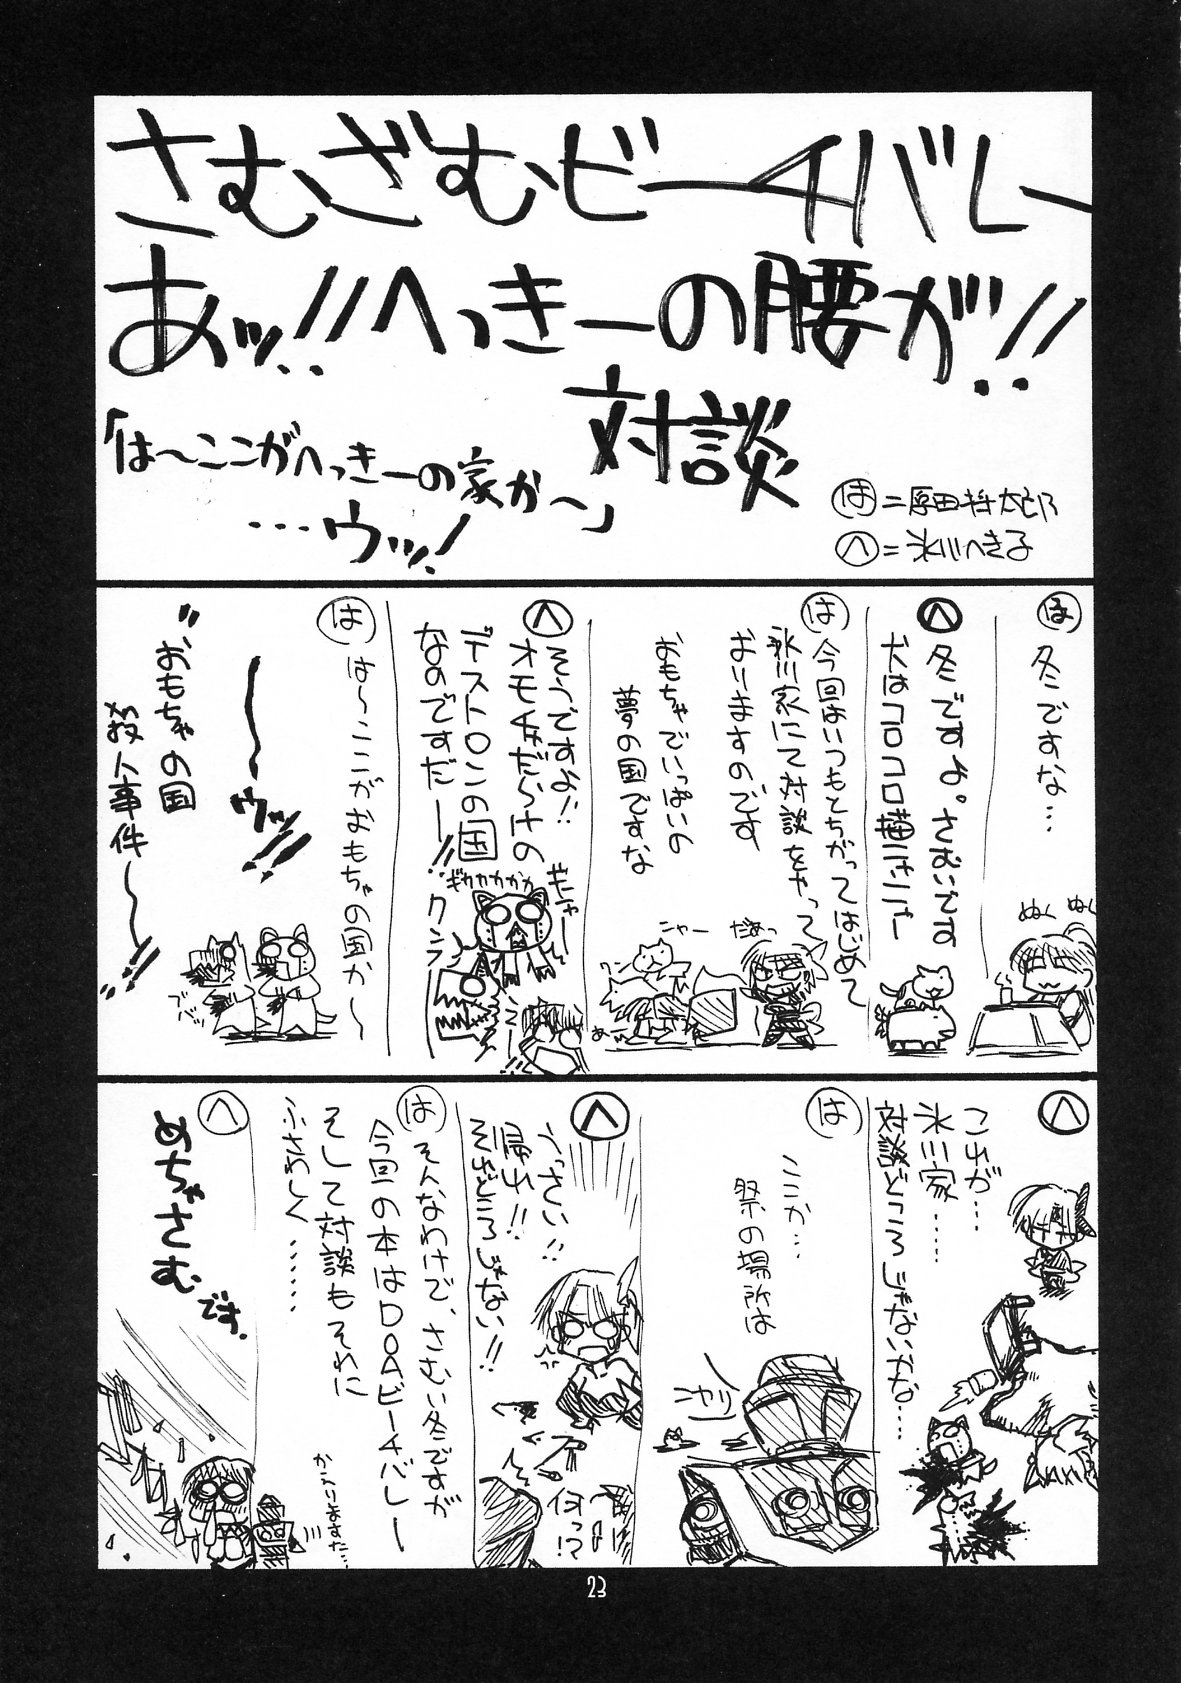 さむざむビーチバレー
あッ!!へっきーの腰が!!
対談
「は〜ここがへっきーの家か〜」
…ウッ!
は=原田将太郎
へ=氷川へきる
は
冬ですな…
ぬくぬく
へ
冬ですよ。さむいです
犬はコロコロ猫ニャニャー
は
今回はいつもとちがってはじめて
氷川家にて対談をやって
おりますのです
おもちゃでいっぱいの
夢の国ですな
だぁっ
ニャー
ワン
へ
そうですよ!!
オモチャだらけの
デストロンの国
なのですだー!!
ギニャー
ギカカカカカ
は
は〜ここがおもちゃの国か〜
〜ウッ!!
"おもちゃの国
殺人事件〜!!
へ
これが…
氷川家……
対談どころじゃないな。…
は
ここか…
祭の場所は
へ
うっさい!!
帰れ!!
それどころじゃない!!
何っ!?
は
そんなわけで、さむい冬ですが
今回の本はDOAビーチバレー
そして対談もそれに
ふさわしく……
かなりますた…
へ
めちゃさむです。
23